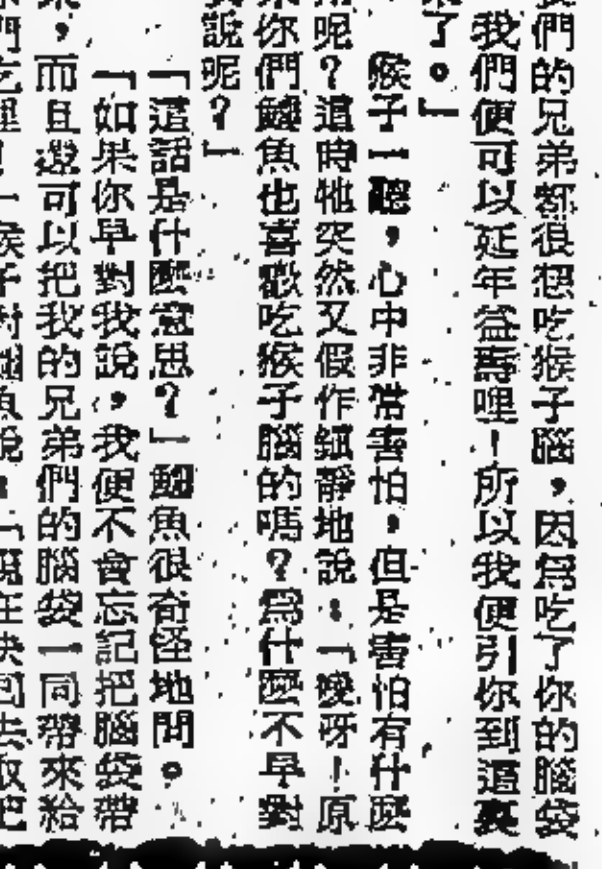 我們的兄弟都很想吃猴子腦，因爲吃了你的腦袋
我們便可以延年益壽哩！所以我便引你到這裏
來了。」
猴子一聽，心中非常害怕，但是害怕有什麼
用呢？這時牠突然又假作鎮靜地說：「噯呀！原
來你們鱷魚也喜歡吃猴子腦的嗎？爲什麼不早對
我說呢？」
「這話是什麼意思？」鱷魚很奇怪地問。
「如果你早對我說，我便不會忘記把腦袋帶
來，而且還可以把我的兄弟們的腦袋一同帶來給
你們吃哩！」猴子對鱷魚說：「現在快回去取吧